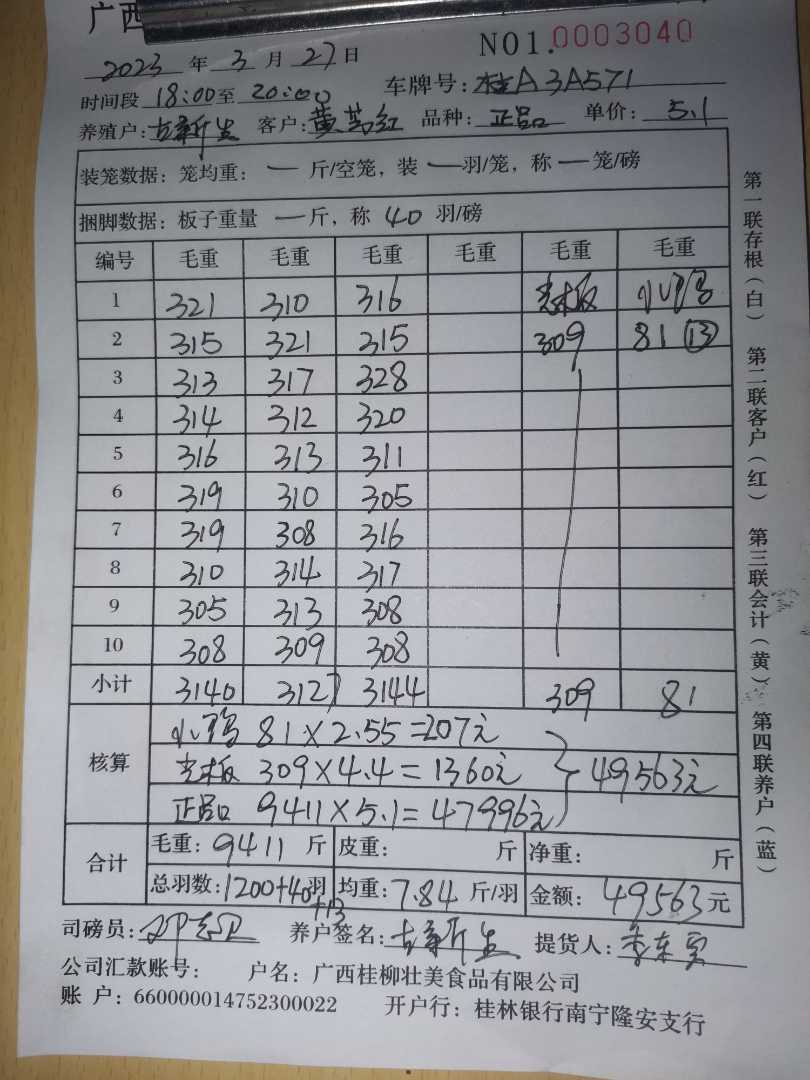 广西
NO1.0003040
2023 年 3 月 27 日
时间段 18:00至 20:00 车牌号: 桂A3A571
养殖户: 古新生 客户: 黄 红 品种: 正品 单价: 5.1
装笼数据: 笼均重: — 斤/空笼, 装 — 羽/笼, 称 — 笼/磅
捆脚数据: 板子重量 — 斤, 称 40 羽/磅
编号 毛重 毛重 毛重 毛重 毛重 毛重
1 321 310 316 光板 小鸭
2 315 321 315 309 81 ⑬
3 313 317 328
4 314 312 320
5 316 313 311
6 319 310 305
7 319 308 316
8 310 314 317
9 305 313 308
10 308 309 308
小计 3140 3127 3144 309 81
核算
小鸭 81×2.55=207元
光板 309×4.4=1360元
正品 9411×5.1=47996元
49563元
合计
毛重: 9411 斤 皮重: 斤 净重: 斤
总羽数: 1200+40羽 +13 均重: 7.84 斤/羽 金额: 49563元
司磅员: 养户签名: 古新生 提货人:
公司汇款账号: 户名: 广西桂柳壮美食品有限公司
账 户: 660000014752300022 开户行: 桂林银行南宁隆安支行
第一联存根(白) 第二联客户(红) 第三联会计(黄) 第四联养户(蓝)